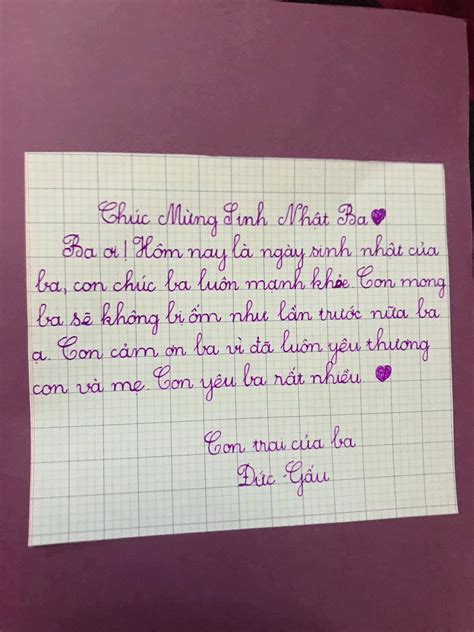 Chúc Mừng Sinh Nhật Ba
Ba ơi! Hôm nay là ngày sinh nhật của
ba, con chúc ba luôn mạnh khỏe. Con mong
ba sẽ không bị ốm như lần trước nữa ba
ạ. Con cảm ơn ba vì đã luôn yêu thương
con và mẹ. Con yêu ba rất nhiều
Con trai của ba
Đức Gấu